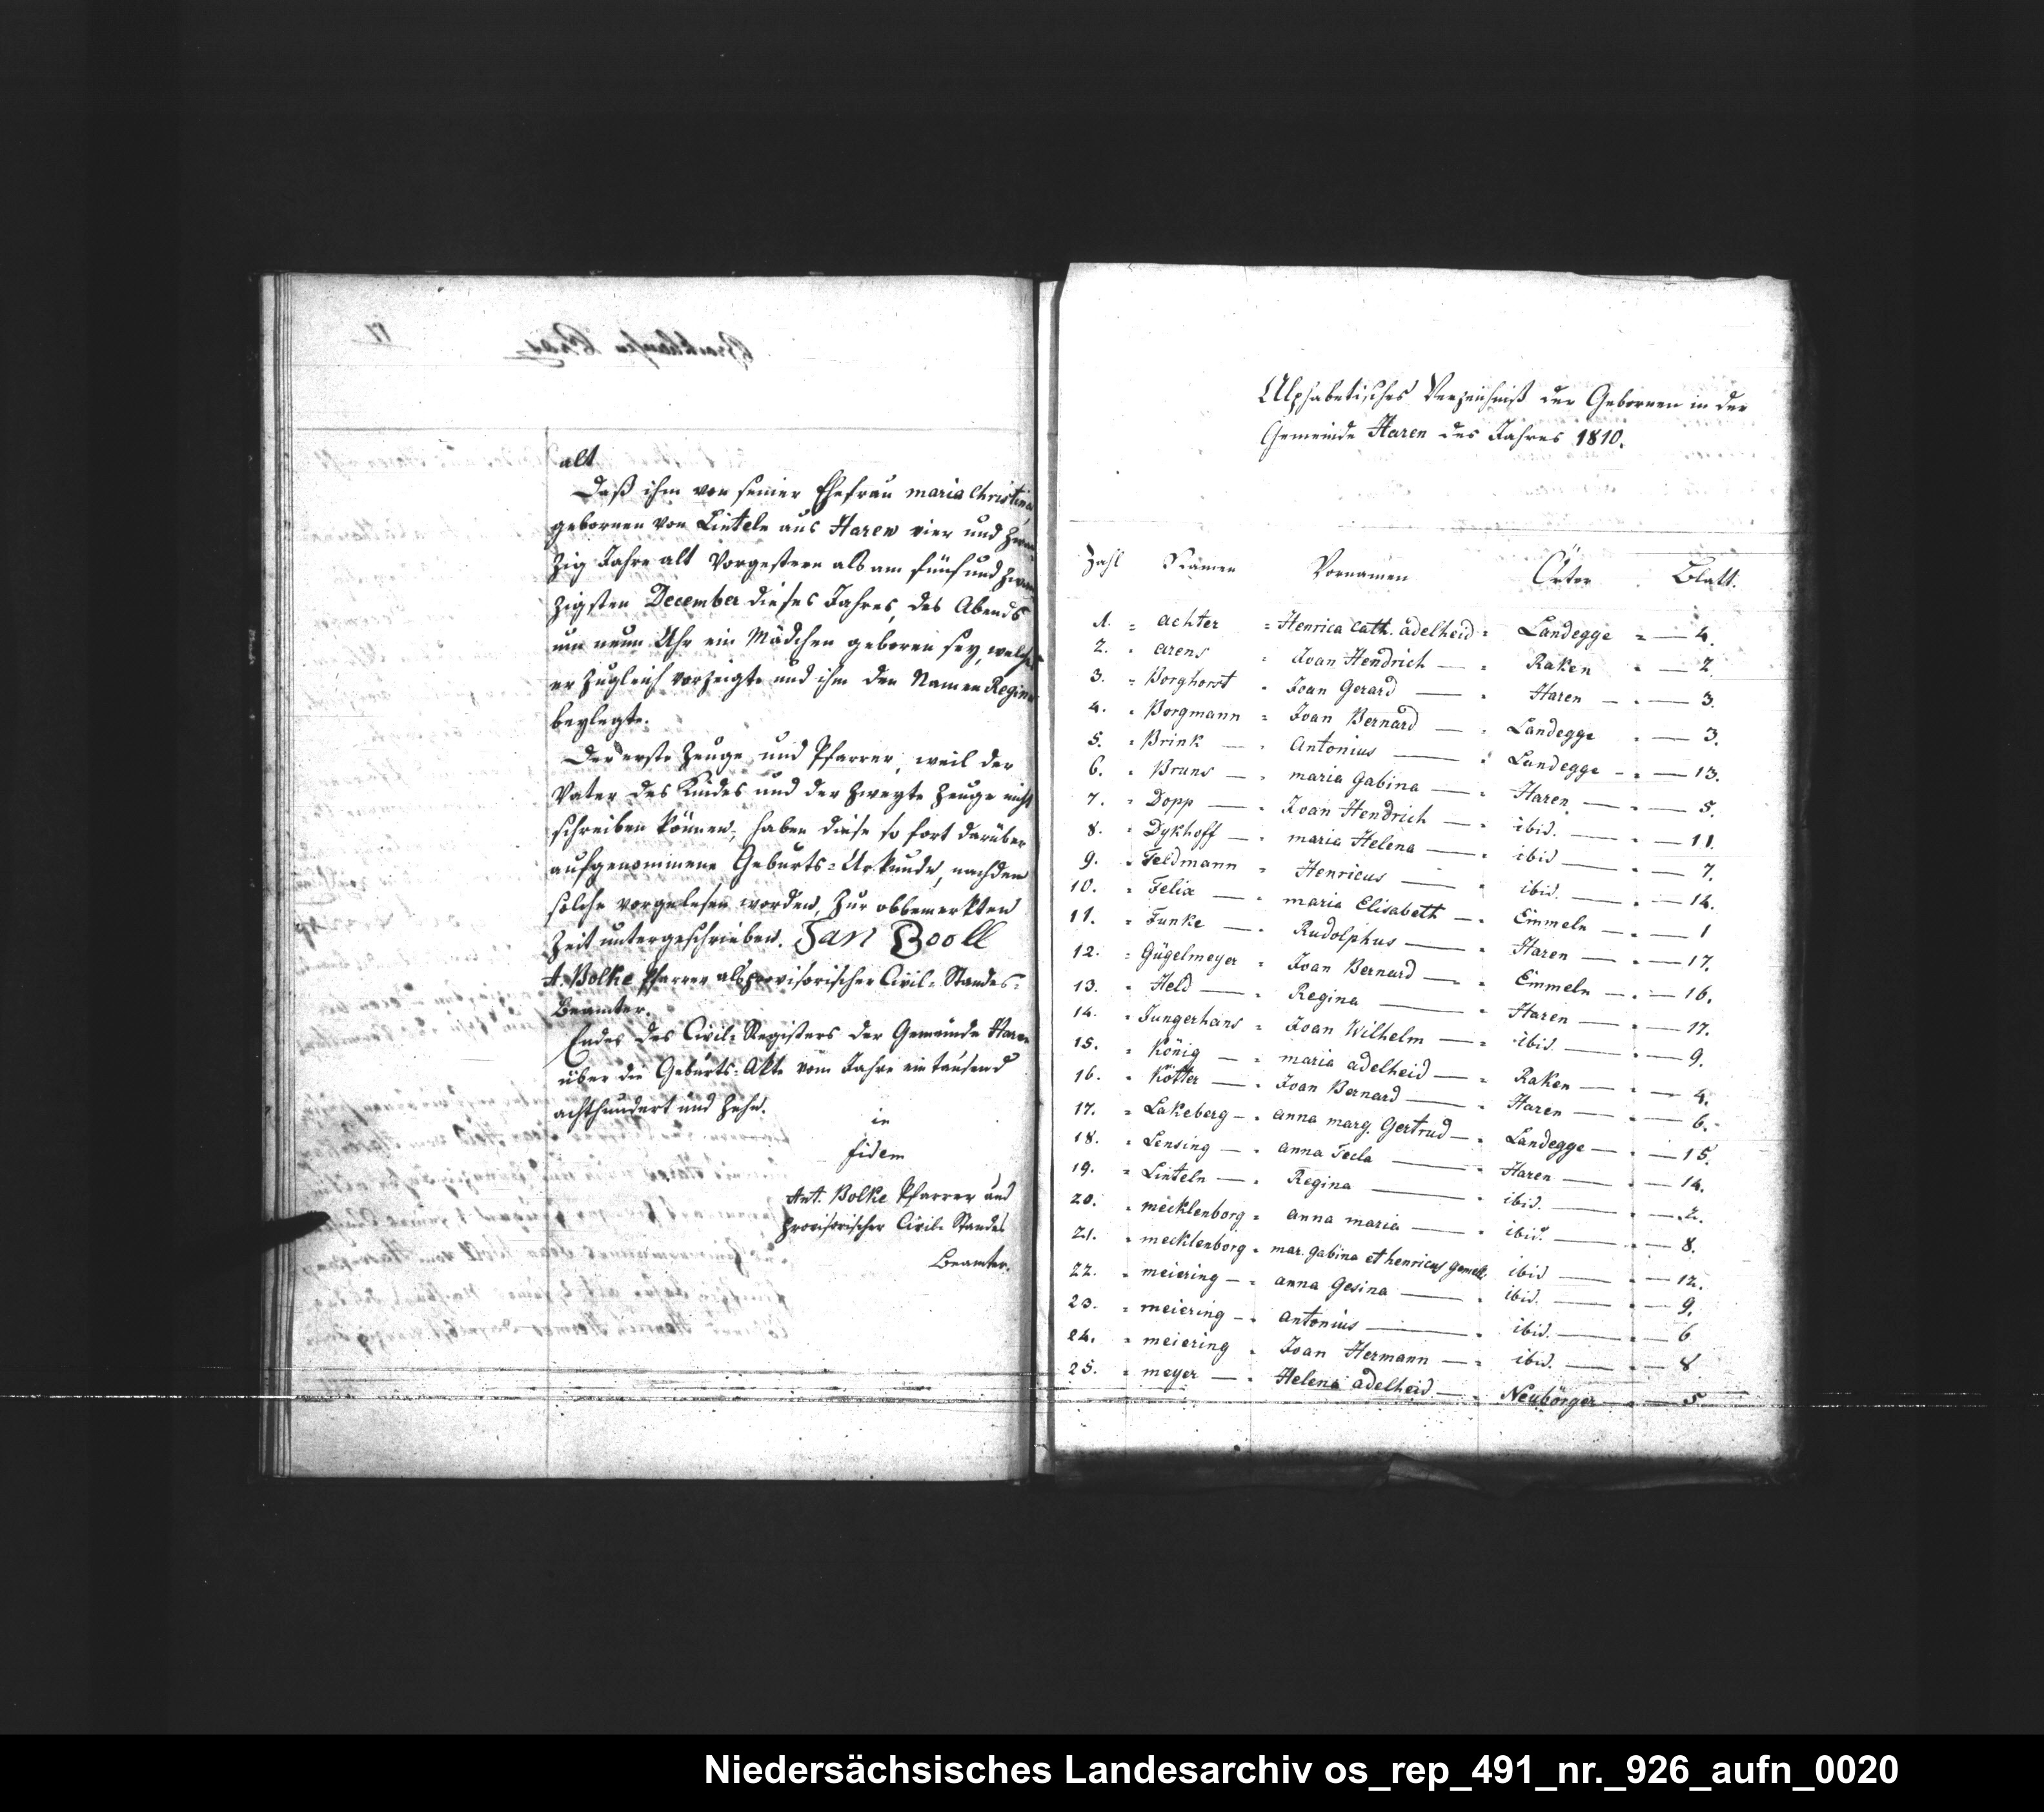 alt
Daß ihm von seiner Ehefrau maria Christina
gebornen von Linteln aus Haren vier und zwan
zig Jahre alt Vorgestern als am fünf und zwan
zigsten December dieses Jahres, des Abends
um neun Uhr ein Mädchen geboren sey, welches
er zugleich vorzeigte und ihm den Namen Regina
beylegte.
Der erste Zeuge, und Pfarrer, weil der
Vater des Kindes und der zweyte Zeuge nicht
schreiben können, haben diese so fort darüber
aufgenommene Geburts=Urkunde, nachdem
solche vorgelesen worden, zur obbemerkten
Zeit untergeschrieben. Jan Booll
A. Bolke Pfarrer als provisorischer Civil=Standes=
Beamter.
Endes des Civil=Registers der Gemeinde Haren
über die Geburts=Akte vom Jahre ein tausend
achthundert und zehn.
in
fidem
Ant. Bolke Pfarrer und
provisorischer Civil-Standes
Beamter.
Alphabetisches Verzeichniß der Gebornen in der
Gemeinde Haren des Jahres 1810.
Zahl Namen Vornamen Örter Blatt.
1. = achter = Henrica Cath. adelheid = Landegge = — 4.
2. = arens = Joan Hendrich — = Raken = — 2.
3. = Borghorst = Joan Gerard — = Haren — = — 3.
4. = Borgmann = Joan Bernard — = Landegge = — 3.
5. = Brink — = Antonius — = Landegge — = — 13.
6. = Bruns — = maria Gabina — = Haren — = — 5.
7. = Dopp — = Joan Hendrich — = ibid. — = — 11.
8. = Dykhoff — = maria Helena — = ibid — = — 7.
9. = Feldmann = Henricus — = ibid. — = — 14.
10. = Felix — = maria Elisabeth — = Emmeln — = — 1
11. = Funke — = Rudolphus — = Haren — = — 17.
12. = Gügelmeyer = Joan Bernard — = Emmeln — = — 16.
13. = Held — = Regina — = Haren — = — 17.
14. = Jungerhans = Joan Wilhelm — = ibid. — = — 9.
15. = König — = maria adelheid — = Raken — = — 4.
16. = Kötter — = Joan Bernard — = Haren — = — 6.
17. = Lakeberg — = anna marg. Gertrud — = Landegge — = — 15.
18. = Lensing — = anna Tecla — = Haren — = — 14.
19. = Linteln — = Regina — = ibid. — = — 2.
20. = mecklenborg = anna maria — = ibid. — = — 8.
21. = mecklenborg = mar. gabina et henricus gemell. ibid — = — 12.
22. = meiering — = anna Gesina — = ibid. — = — 9.
23. = meiering — = antonius — = ibid. — = — 6
24. = meiering = Joan Hermann — = ibid. — = — 8
25. = meyer — = Helena adelheid — = Neubörger — = — 5.
Niedersächsisches Landesarchiv os_rep_491_nr._926_aufn_0020